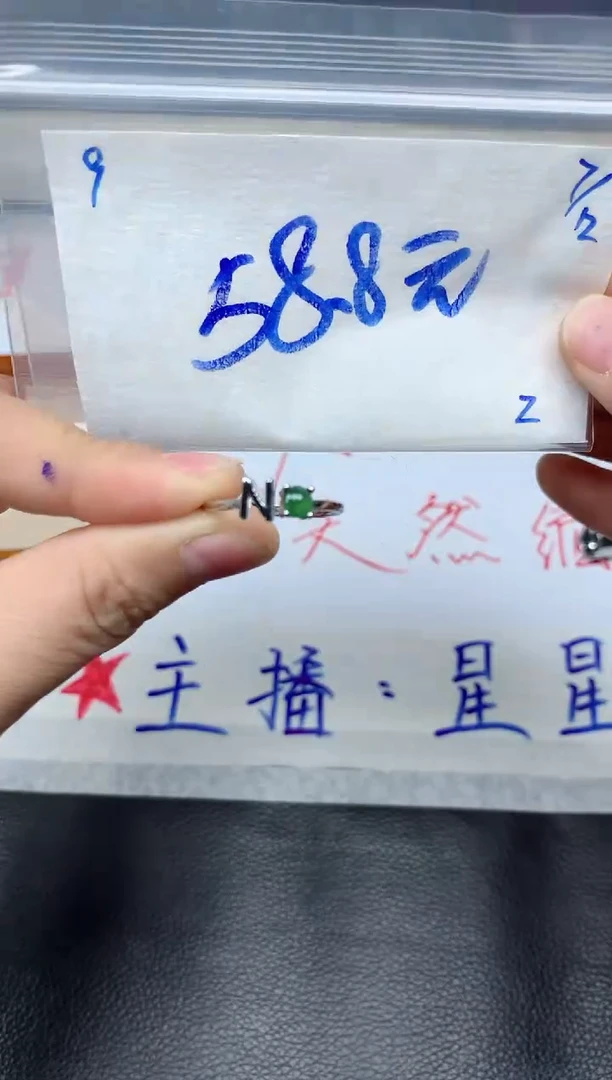 9
58.8元
Z
N
天然缅
主播:星星